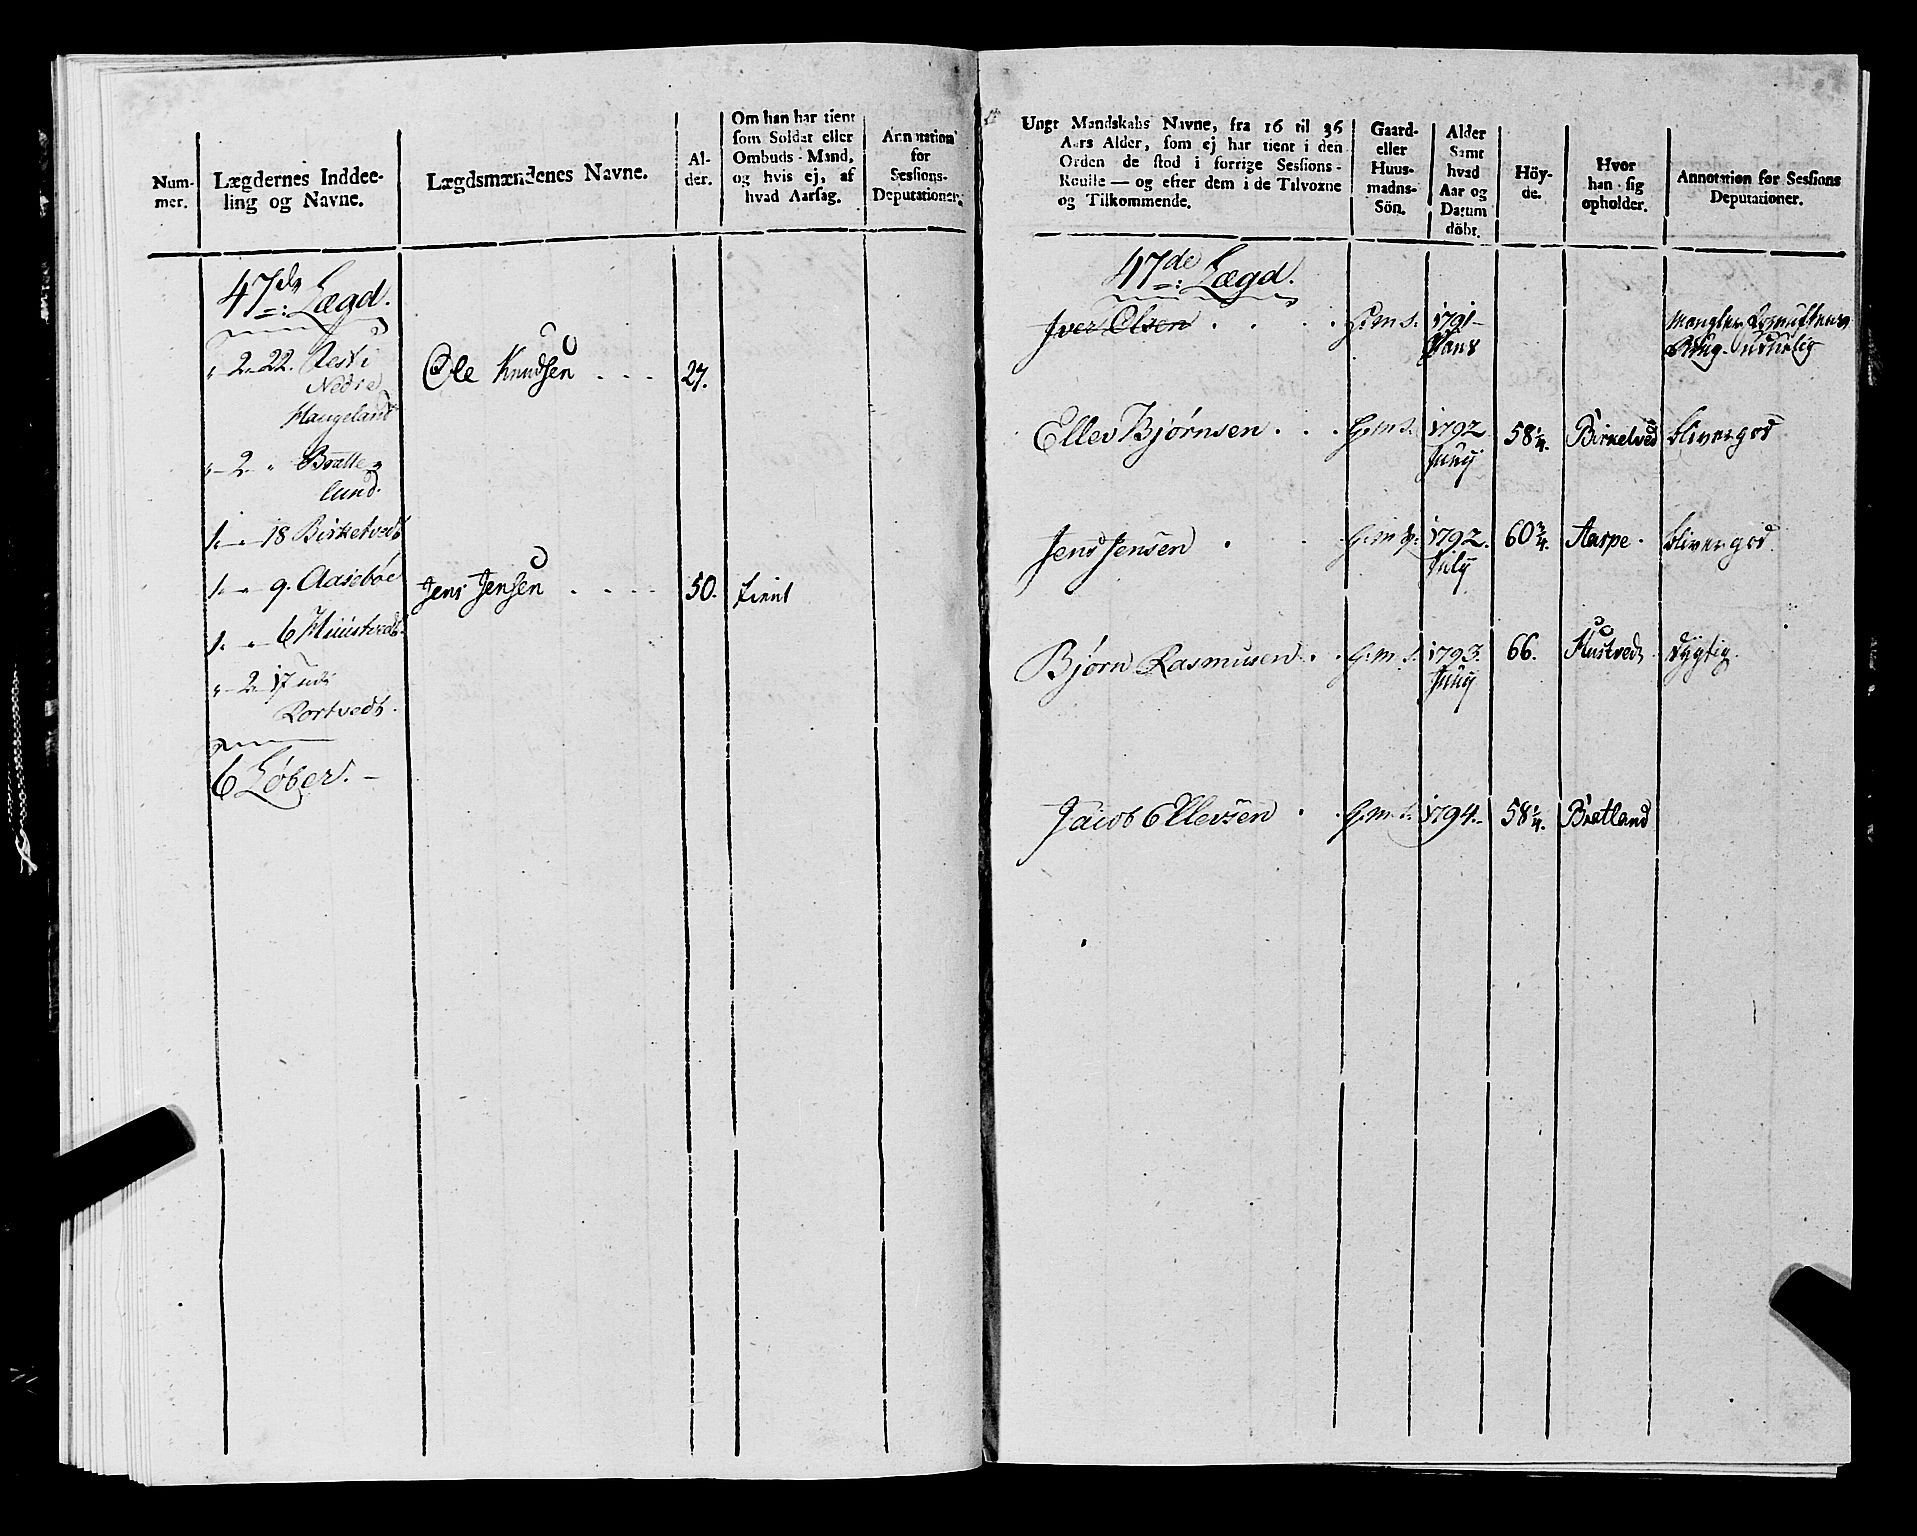 Num-
mer.
Lægdernes Inddee-
ling og Navne.
Lægdsmændenes Navne.
Al-
der.
Om han har tient
som Soldat eller
Ombuds-Mand,
og hvis ej, af
hvad Aarsag.
Annotation
for
Sessions-
Deputationer.
47de Lægd.
2 22. Resti
Nedre
Haugeland
Ole Knudsen 27.
2 Brätte
lund.
1 18 Birketvedt
1 9. Aasebøe
Jens Jensen 50. tient
1 6 Huustvedt
2 17 udi
Rortvedt.
6 Løber.
Ungt Mandskabs Navne, fra 16 til 36
Aars Alder, som ej har tient i den
Orden de stod i forrige Sessions-
Roulle — og efter dem i de Tilvoxne
og Tilkommende.
Gaard-
eller
Huus-
madns-
Sön.
Alder
Samt
hvad
Aar og
Datum
döbt.
Höy-
de.
Hvor
han sig
opholder.
Annotation for Sessions
Deputationer.
47de Lægd.
Iver Olsen G:m s. 1791 Mangler Fornuftens
Brug. udtienlig
Ellev Bjørnsen G:m s. 1792 58 1/4. Birkelved bliver god
Juny
Jens Jensen G:m s. 1792. 60 3/4. Aarpe. bliver god.
July
Bjørn Rasmusen G:m s. 1793. 66. Hustvedt dygtig.
Juny
Jacob Ellevsen G:m s. 1794. 58 1/4. Brætland